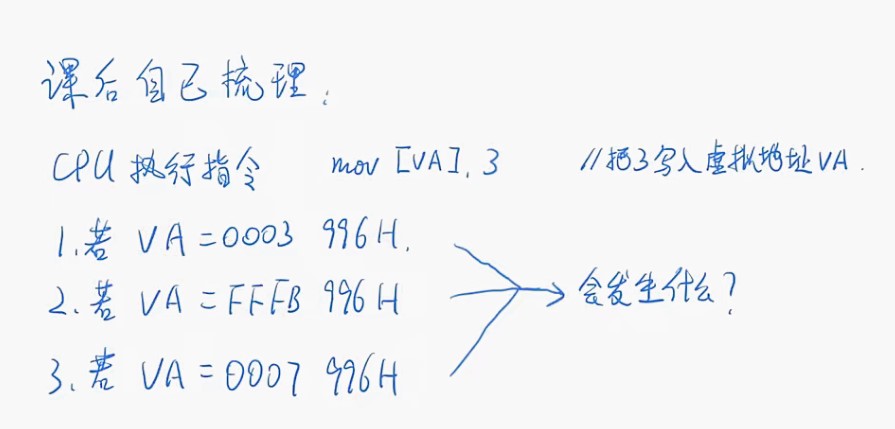 课后自己梳理:
CPU 执行指令 mov [VA], 3 //把3写入虚拟地址VA.
1.若 VA=0003 996H.
2.若 VA=FFFB 996H
会发生什么?
3.若 VA=0007 996H